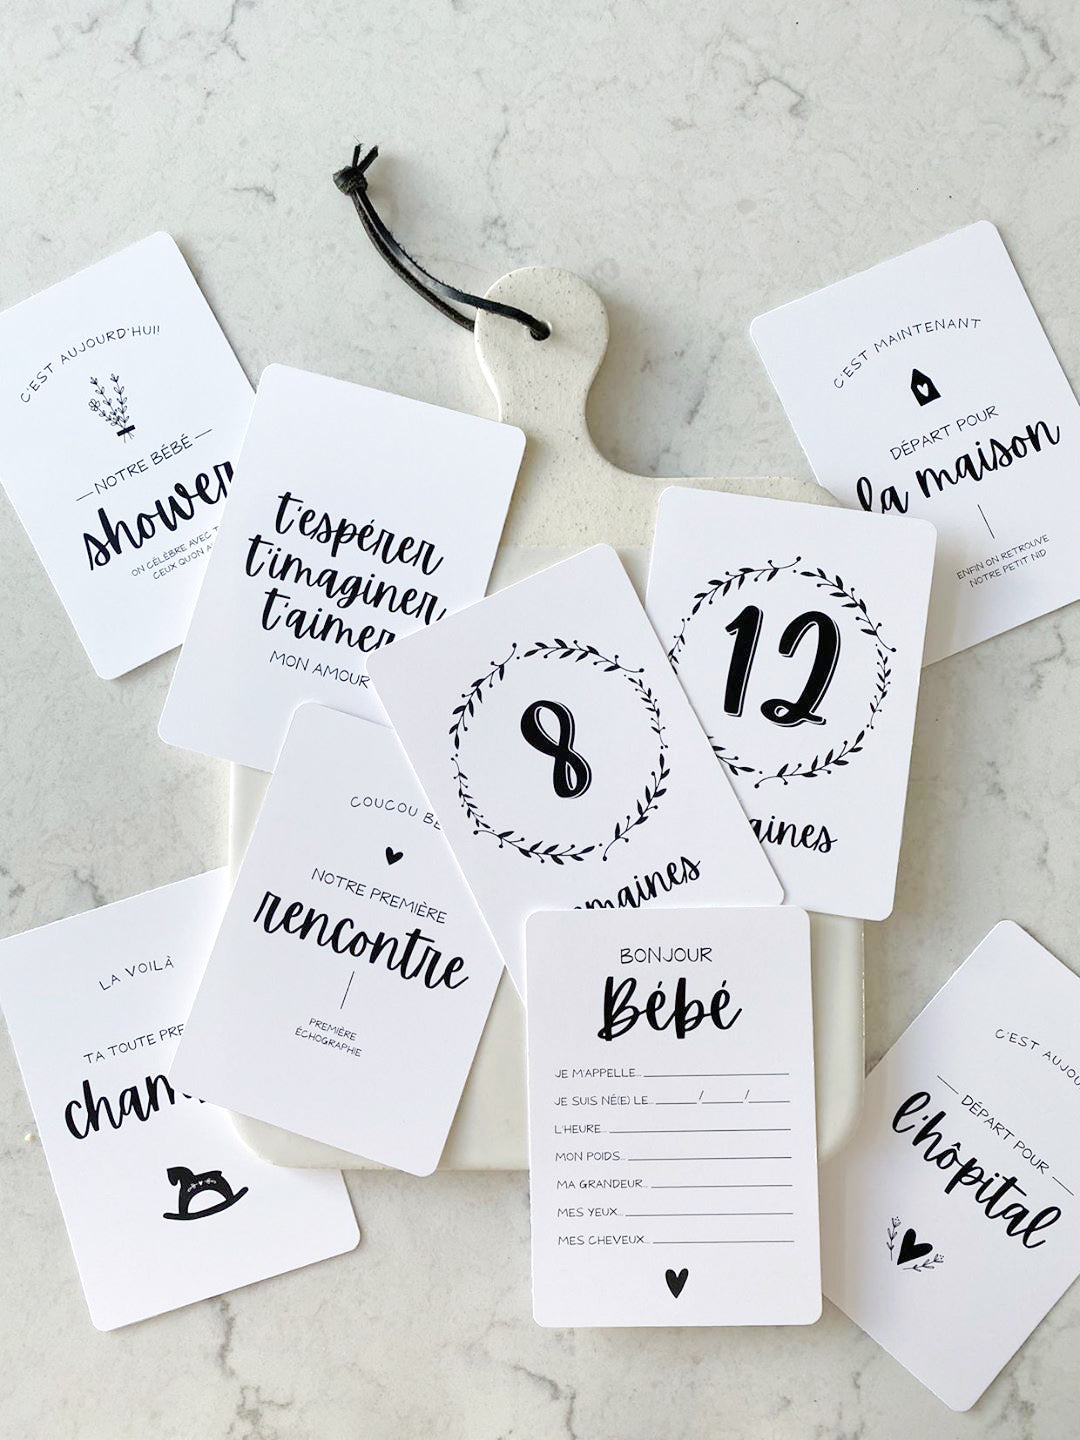 C'EST AUJOURD'HUI!
NOTRE BÉBÉ
shower
ON CÉLÈBRE AVEC
CEUX QU'ON
t'espérer
t'imaginer
t'aimer
MON AMOUR
C'EST MAINTENANT
DÉPART POUR
la maison
ENFIN ON RETROUVE
NOTRE PETIT NID
12
8
COUCOU
NOTRE PREMIÈRE
rencontre
PREMIÈRE
ÉCHOGRAPHIE
LA VOILÀ
TA TOUTE
BONJOUR
Bébé
JE M'APPELLE...
JE SUIS NÉ(E) LE... / /
L'HEURE...
MON POIDS...
MA GRANDEUR...
MES YEUX...
MES CHEVEUX...
C'EST
DÉPART POUR
l'hôpital